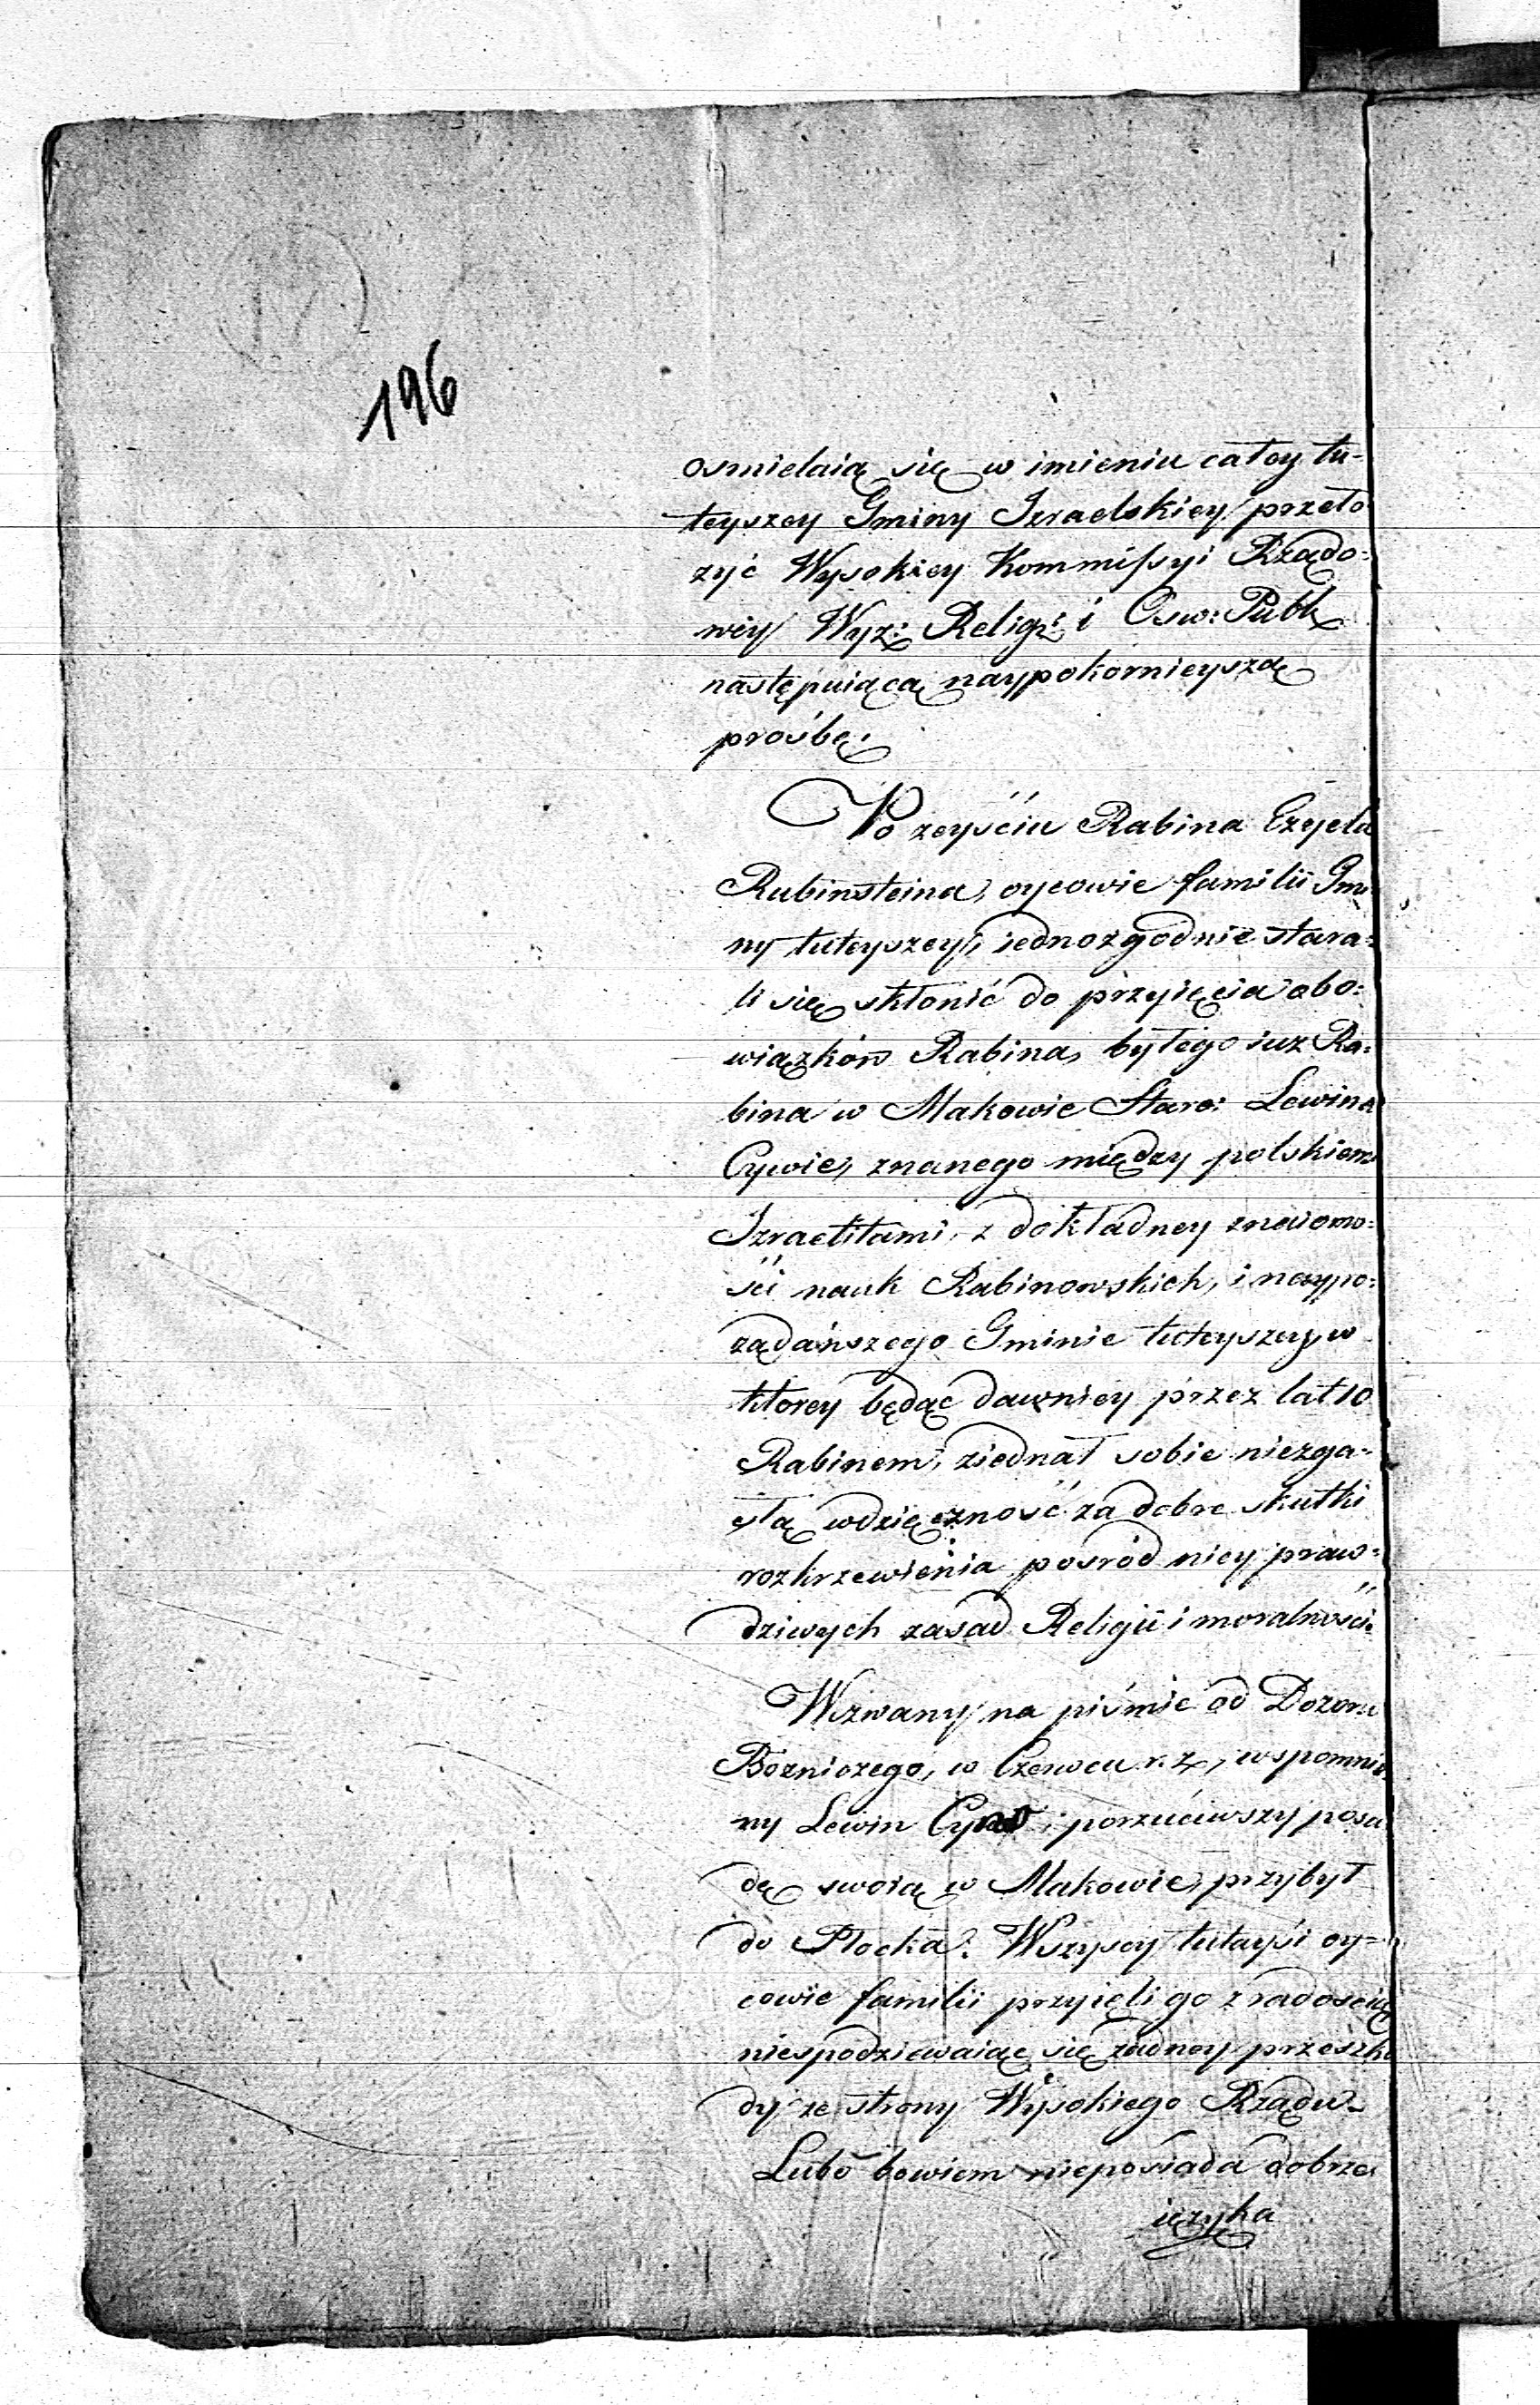 17
196
osmielaią się w imieniu całey tu-
teyszey Gminy Izraelskiey przeło
zyć Wysokiey Kommissyi Rządo=
wey Wyz: Relig: i Osw: Publ
następuiącą naypokornieyszą
prośbę.
Po zeyściu Rabina Ezyela
Rubinsteina, oycowie familii Gmi
ny tuteyszey, iednozgodnie stara=
li się skłonić do przyięcia obo=
wiązków Rabina, byłego iuz Ra=
bina w Makowie Staro: Lewina
Cywie, znanego między polskiemi
Izraelitami, z dokładney znaiomo=
ści nauk Rabinowskich, i naypo=
ządańszego Gminie tuteyszey, w
ktorey będąc dawniey przez lat 10
Rabinem, ziednał sobie niezga=
słą wdzięczność za dobre skutki
rozkrzewienia pośród niey praw=
dziwych zasad Religii i moralności.
Wezwany na piśmie od Dozoru
Bozniczego, w Czerwcu r. z., wspomnio
ny Lewin i porzuciwszy posa
dę swoią w Makowie, przybył
do Płocka. Wszyscy tuteysi oy=
cowie familii przyięli go z radością
niespodziewaiąc się zadney przeszko
dy ze strony Wysokiego Rządu.
Lubo bowiem nieposiada dobrze
ięzyka